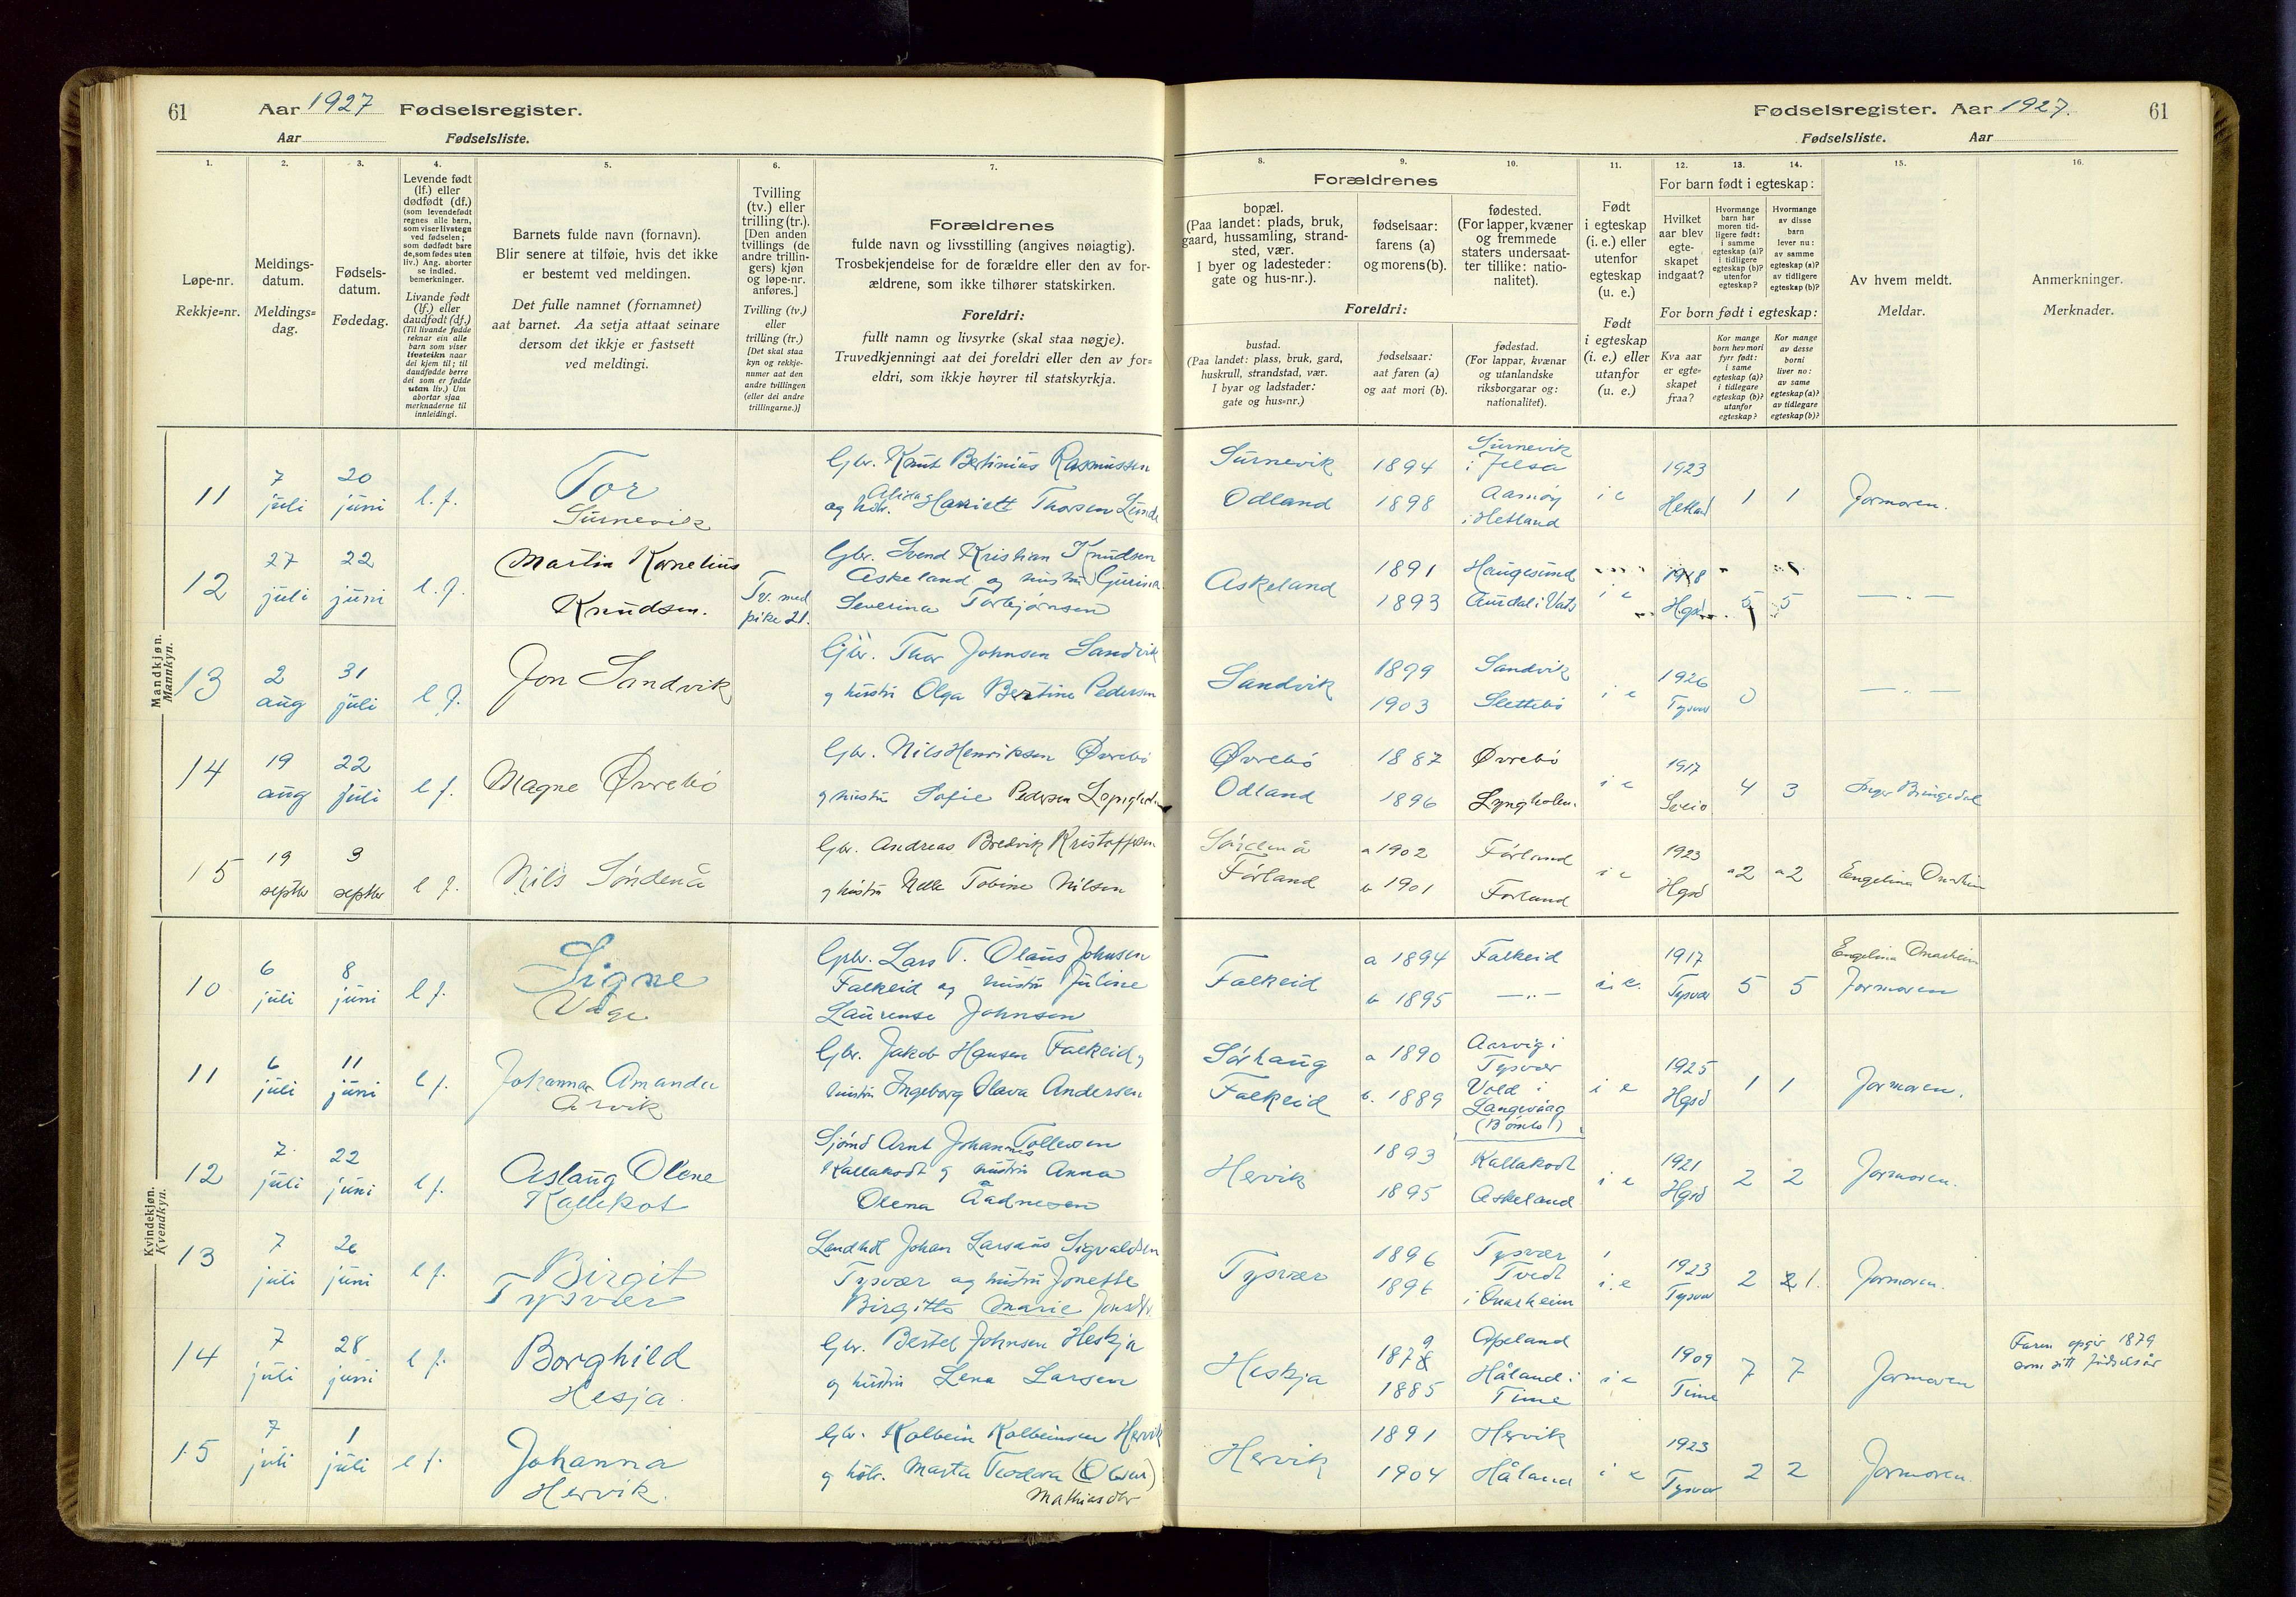 61 Aar 1927 Fødselsregister.
Aar Fødselsliste.
Fødselsregister. Aar 1927. 61
Fødselsliste. Aar
1. 2. 3. 4. 5. 6. 7. 8. 9. 10. 11. 12. 13. 14. 15. 16.
Løpe-nr.
Rekkje=nr.
Meldings-
datum.
Meldings=
dag.
Fødsels-
datum.
Fødedag.
Levende født
(lf.) eller
dødfødt (df.)
(som levendefødt
regnes alle barn,
som viser livstegn
ved fødselen;
som dødfødt bare
de, som fødes uten
liv.) Ang. aborter
se indled.
bemerkninger.
Livande født
(lf.) eller
daudfødt (df.)
(Til livande fødde
reknar ein alle
barn som viser
livsteikn naar
dei kjem til; til
daudfødde berre
dei som er fødde
utan liv.) Um
abortar sjaa
merknaderne til
innleidingi.
Barnets fulde navn (fornavn).
Blir senere at tilføie, hvis det ikke
er bestemt ved meldingen.
Det fulle namnet (fornamnet)
aat barnet. Aa setja attaat seinare
dersom det ikkje er fastsett
ved meldingi.
Tvilling
(tv.) eller
trilling (tr.).
[Den anden
tvillings (de
andre trillin-
gers) kjøn
og løpe-nr.
anføres.]
Tvilling (tv.)
eller
trilling (tr.)
[Det skal staa
kyn og rekkje-
numer aat den
andre tvillingen
(eller dei andre
trillingarne.)]
Forældrenes
fulde navn og livsstilling (angives nøiagtig).
Trosbekjendelse for de forældre eller den av for-
ældrene, som ikke tilhører statskirken.
Foreldri:
fullt namn og livsyrke (skal staa nøgje).
Truvedkjenningi aat dei foreldri eller den av for=
eldri, som ikkje høyrer til statskyrkja.
Forældrenes
bopæl.
(Paa landet: plads, bruk,
gaard, hussamling, strand-
sted, vær.
I byer og ladesteder:
gate og hus-nr.).
fødselsaar:
farens (a)
og morens (b).
fødested.
(For lapper, kvæner
og fremmede
staters undersaat-
ter tillike: natio-
nalitet).
Foreldri:
bustad.
(Paa landet: plass, bruk, gard,
huskrull, strandstad, vær.
I byar og ladstader:
gate og hus=nr.)
fødselsaar:
aat faren (a)
og aat mori (b).
fødestad.
(For lappar, kvænar
og utanlandske
riksborgarar og:
nationalitet).
Født
i egteskap
(i. e.) eller
utenfor
egteskap
(u. e.)
Født
i egteskap
(i. e.) eller
utanfor
(u. e.)
For barn født i egteskap:
Hvilket
aar blev
egte-
skapet
indgaat?
Hvormange
barn har
moren tid-
ligere født:
i samme
egteskap (a)?
i tidligere
egteskap (b)?
utenfor
egteskap?
Hvormange
av disse
barn
lever nu:
av samme
egteskap (a)?
av tidligere
egteskap (b)?
For born født i egteskap:
Kva aar
er egte=
skapet
fraa?
Kor mange
born hev mori
fyrr født:
i same
egteskap (a)?
i tidlegare
egteskap (b)?
utanfor
egteskap?
Kor mange
av desse
borni
liver no:
av same
egteskap (a)?
av tidlegare
egteskap (b)?
Av hvem meldt.
Meldar.
Anmerkninger.
Merknader.
Mandkjøn.
Mannkyn.
11 7 juli 20 juni l. f. Tor Surnevik
Gbr. Knut Bertinius Rasmussen
og hstr. Alida Harriett Thorsen Lunde
Surnevik Odland 1894 1898 Surnevik i Jelsa Aamøy i Hetland i e 1923 Hetland 1 1 Jormoren.
12 27 juli 22 juni l. f. Martin Kornelius Knudsen. Tv. med pike 21.
Gbr. Svend Kristian Knudsen
Askeland og hustru Gurina
Severina Torbjørnsen
Askeland 1891 1893 Haugesund Aurdal i Vats i e 1918 Hgsd. 5 5 — " —
13 2 aug 31 juli l f. Jon Sandvik
Gbr. Thor Johnsen Sandvik
og hustru Olga Bertine Pedersen
Sandvik 1899 1903 Sandvik Slettebø i e 1926 Tysvær 0 — " —
14 19 aug 22 juli l f. Magne Øvrebø
Gbr. Nils Henriksen Øvrebø
og hustru Sofie Pedersen
Øvrebø Odland 1887 1896 Øvrebø Lyngholm. i e 1917 Sveio 4 3 Inger Bringedal
15 19 septbr 9 septbr l f. Nils Søndenå
Gbr. Andreas Bredvik Kristoffersen
og hustru Nelle Tobine Nilsen
Søndenå Førland a 1902 b 1901 Førland Førland i e 1923 Hgsd a2 a2 Engelina
Kvindekjøn.
Kvendkyn.
10 6 juli 8 juni l f. Signe Våge
Gbr. Lars T. Olaus Johnsen
Falkeid og hustru Juline
Laurense Johnsen
Falkeid a 1894 b 1895 Falkeid — " — i. e. 1917 Tysvær 5 5 Engelina Jormoren
11 6 juli 11 juni l f. Johanna Amanda Arvik
Gbr. Jakob Hansen Falkeid,
hustru Ingeborg Olava Andersen
Sørhaug Falkeid a 1890 b. 1889 Aarvig i Tysvær Vold i Langevåag (Bømlo) i e 1925 Hgsd 1 1 Jormoren.
12 7. juli 22 juni l f. Aslaug Olene Kallekot
Sjømd Arnt Johannes Tollevsen
Kallakodt og hustru Anna
Olena Aadnesen
Hervik 1893 1895 Kallakodt Askeland i e 1921 Hgsd 2 2 Jormoren.
13 7 juli 26 juni l f. Birgit Tysvær
Landhdl Johan Larsens Sigvaldsen
Tysvær og hustru Jonette
Birgitte Marie Jonsdtr.
Tysvær 1896 1896 Tysvær Tvedt i Skjoldheim i. e 1923 Tysvær 2 2 1. Jormoren.
14 7 juli 28 juni l f. Borghild Hesja
Gbr. Bertel Johnsen Heskja
og hustru Lena Larsen
Heskja 1878 9 1885 Opeland Håland i Time i e 1909 Time 7 7 Jormoren
Faren opgir 1879
som sitt fødselsår
15 7 juli 1 juli l f. Johanna Hervik.
Gbr. Kolbein Kolbeinsen Hervik
og hstr. Marta Teodora (Olsen)
Mathiasdtr
Hervik 1891 1904 Hervik Håland i e 1923 Tysvær 2 2 Jormoren.